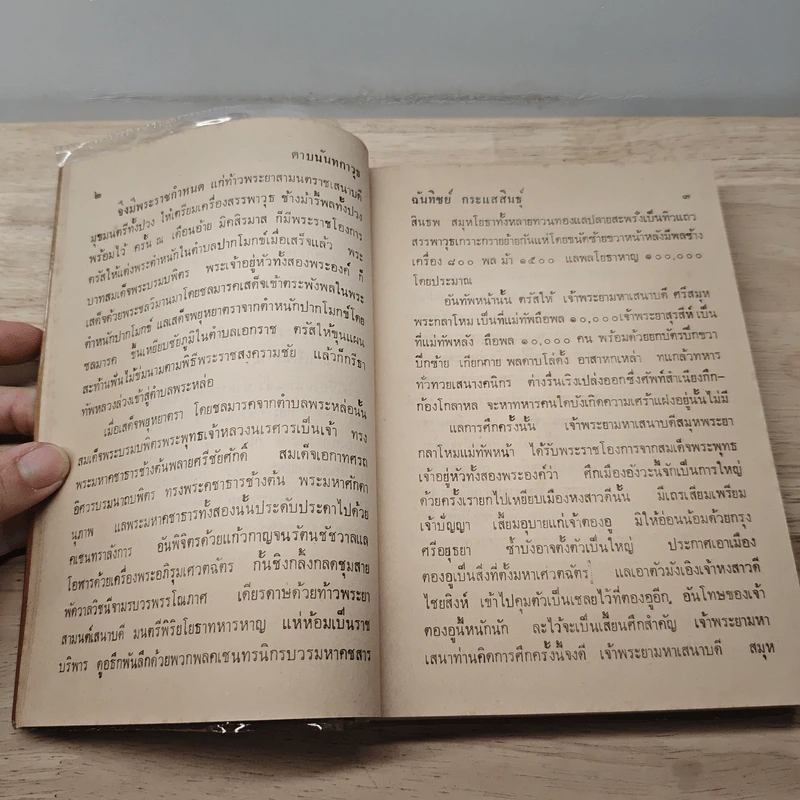 ๒ ดาบนันทกาวุธ
จึงมีพระราชกำหนด แก่ท้าวพระยาสามนตราชเสนาบดี
มุขมนตรีทั้งปวง ให้เตรียมเครื่องสรรพาวุธ ช้างม้ารี้พลทั้งปวง
พร้อมไว้ ครั้น ณ เดือนอ้าย มิคสิรมาส ก็มีพระราชโองการ
ตรัสให้แต่งพระตำหนักในตำบลปากโมกข์เมื่อเสร็จแล้ว พระ
บาทสมเด็จพระบรมบพิตร พระเจ้าอยู่หัวทั้งสองพระองค์ ก็
เสด็จด้วยพระชลวิมานมาโดยชลมารคเสด็จเข้าตระพังพลในพระ
ตำหนักปากโมกข์ แลเสด็จพยุหยาตราจากตำหนักปากโมกข์โดย
ชลมารค ขึ้นเหยียบชัยภูมิในตำบลเอกราช ตรัสให้ขุนแผน
สะท้านฟันไม้ข่มนามตามพิธีพระราชสงครามชัย แล้วก็กรีธา
ทัพหลวงล่วงเข้าสู่ตำบลพระหล่อ
เมื่อเสด็จพยุหยาตรา โดยชลมารคจากตำบลพระหล่อนั้น
สมเด็จพระบรมบพิตรพระพุทธเจ้าหลวงนเรศวรเป็นเจ้า ทรง
พระมหาคชาธารช้างต้นพลายศรีชัยศักดิ์ สมเด็จเอกาทศรถ
อิศวรบรมนาถบพิตร ทรงพระคชาธารช้างต้น พระมหาศักดา
นุภาพ แลพระมหาคชาธารทั้งสองนั้นประดับประดาไปด้วย
คเชนทราลังการ อันพิจิตรด้วยแก้วกาญจนรัตนชัชวาลแล
โอฬารด้วยเครื่องพระอภิรุมเศวตฉัตร กั้นชิงกลิ้งกลดชุมสาย
พัดวาลวิชนีจามรบวรพรรโณภาศ เดียรดาษด้วยท้าวพระยา
สามนต์เสนาบดี มนตรีพิริยโยธาทหารหาญ แห่ห้อมเป็นราช
บริพาร ดูอธึกพันลึกด้วยพวกพลคเชนทรนิกรบวรมหาคชสาร
ฉันทิชย์ กระแสสินธุ์ ๓
สินธพ สมุหโยธาทั้งหลายทวนทองแลปลายสะพรั่งเป็นทิวแถว
สรรพาวุธเกราะกรายย้ายกันแห่โดยขนัดซ้ายขวาหน้าหลังมีพลช้าง
เครื่อง ๘๐๐ พล ม้า ๑๕๐๐ แลพลโยธาหาญ ๑๐๐,๐๐๐
โดยประมาณ
อันทัพหน้านั้น ตรัสให้ เจ้าพระยามหาเสนาบดี ศรีสมุห
พระกลาโหม เป็นที่แม่ทัพถือพล ๑๐,๐๐๐เจ้าพระยาสุรสีห์ เป็น
ที่แม่ทัพหลัง ถือพล ๑๐,๐๐๐ คน พร้อมด้วยยกบัตรปีกขวา
ปีกซ้าย เกียกกาย พลดาบโล่ดั้ง อาสาหกเหล่า ทแกล้วทหาร
ทั่วทวยเสนางคนิกร ต่างรื่นเริงเปล่งออกซึ่งศัพท์สำเนียงกึก–
ก้องโกลาหล จะหาทหารคนใดบังเกิดความเศร้าแฝงอยู่นั้นไม่มี
แลการศึกครั้งนั้น เจ้าพระยามหาเสนาบดีสมุหพระยา
กลาโหมแม่ทัพหน้า ได้รับพระราชโองการจากสมเด็จพระพุทธ
เจ้าอยู่หัวทั้งสองพระองค์ว่า ศึกเมืองอังวะนี้จักเป็นการใหญ่
ด้วยครั้งเรายกไปเหยียบเมืองหงสาวดีนั้น มีเถรเสียมเพรียม
เจ้าปัญญา เสี้ยมอุบายแก่เจ้าตองอู มิให้อ่อนน้อมด้วยกรุง
ศรีอยุธยา ซ้ำบังอาจตั้งตัวเป็นใหญ่ ประกาศเอาเมือง
ตองอูเป็นสิ่งที่ตั้งมหาเศวตฉัตร แลเอาตัวมังเอิงเจ้าหงสาวดี
ไชยสิงห์ เข้าไปคุมตัวเป็นเชลยไว้ที่ตองอูอีก อันโทษของเจ้า
ตองอูนี้หนักนัก ละไว้จะเป็นเสี้ยนศึกสำคัญ เจ้าพระยามหา
เสนาท่านคิดการศึกครั้งนี้จงดี เจ้าพระยามหาเสนาบดี สมุห